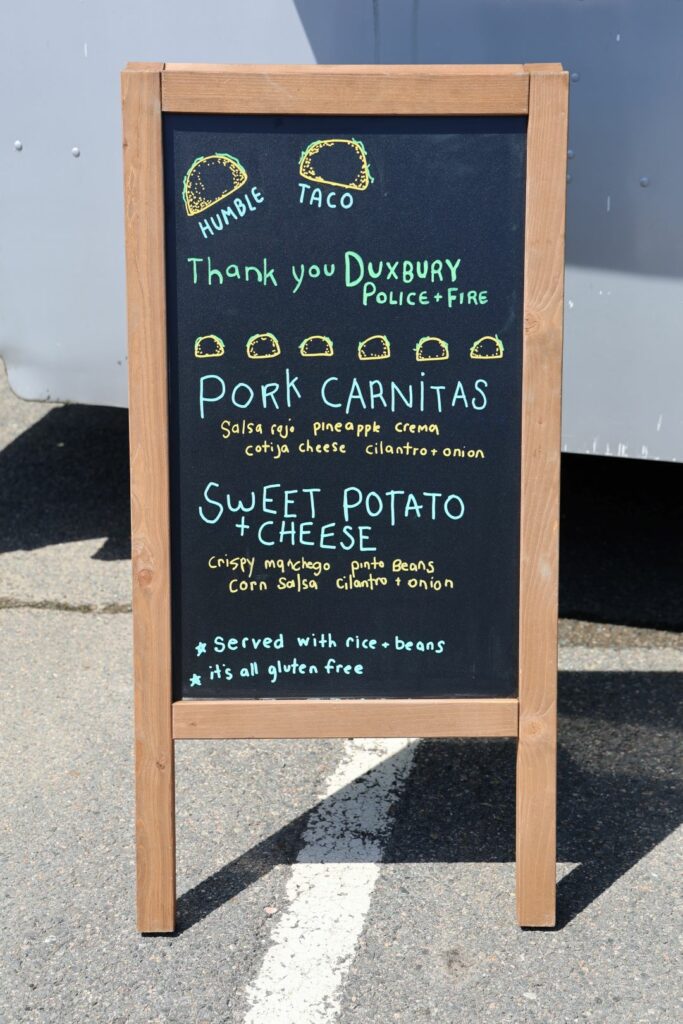 HUMBLE TACO
Thank you DUXBURY
POLICE + FIRE
PORK CARNITAS
Salsa rojo pineapple crema
cotija cheese cilantro + onion
SWEET POTATO
+ CHEESE
Crispy manchego pinto Beans
Corn Salsa cilantro + onion
* Served with rice + beans
* it's all gluten free